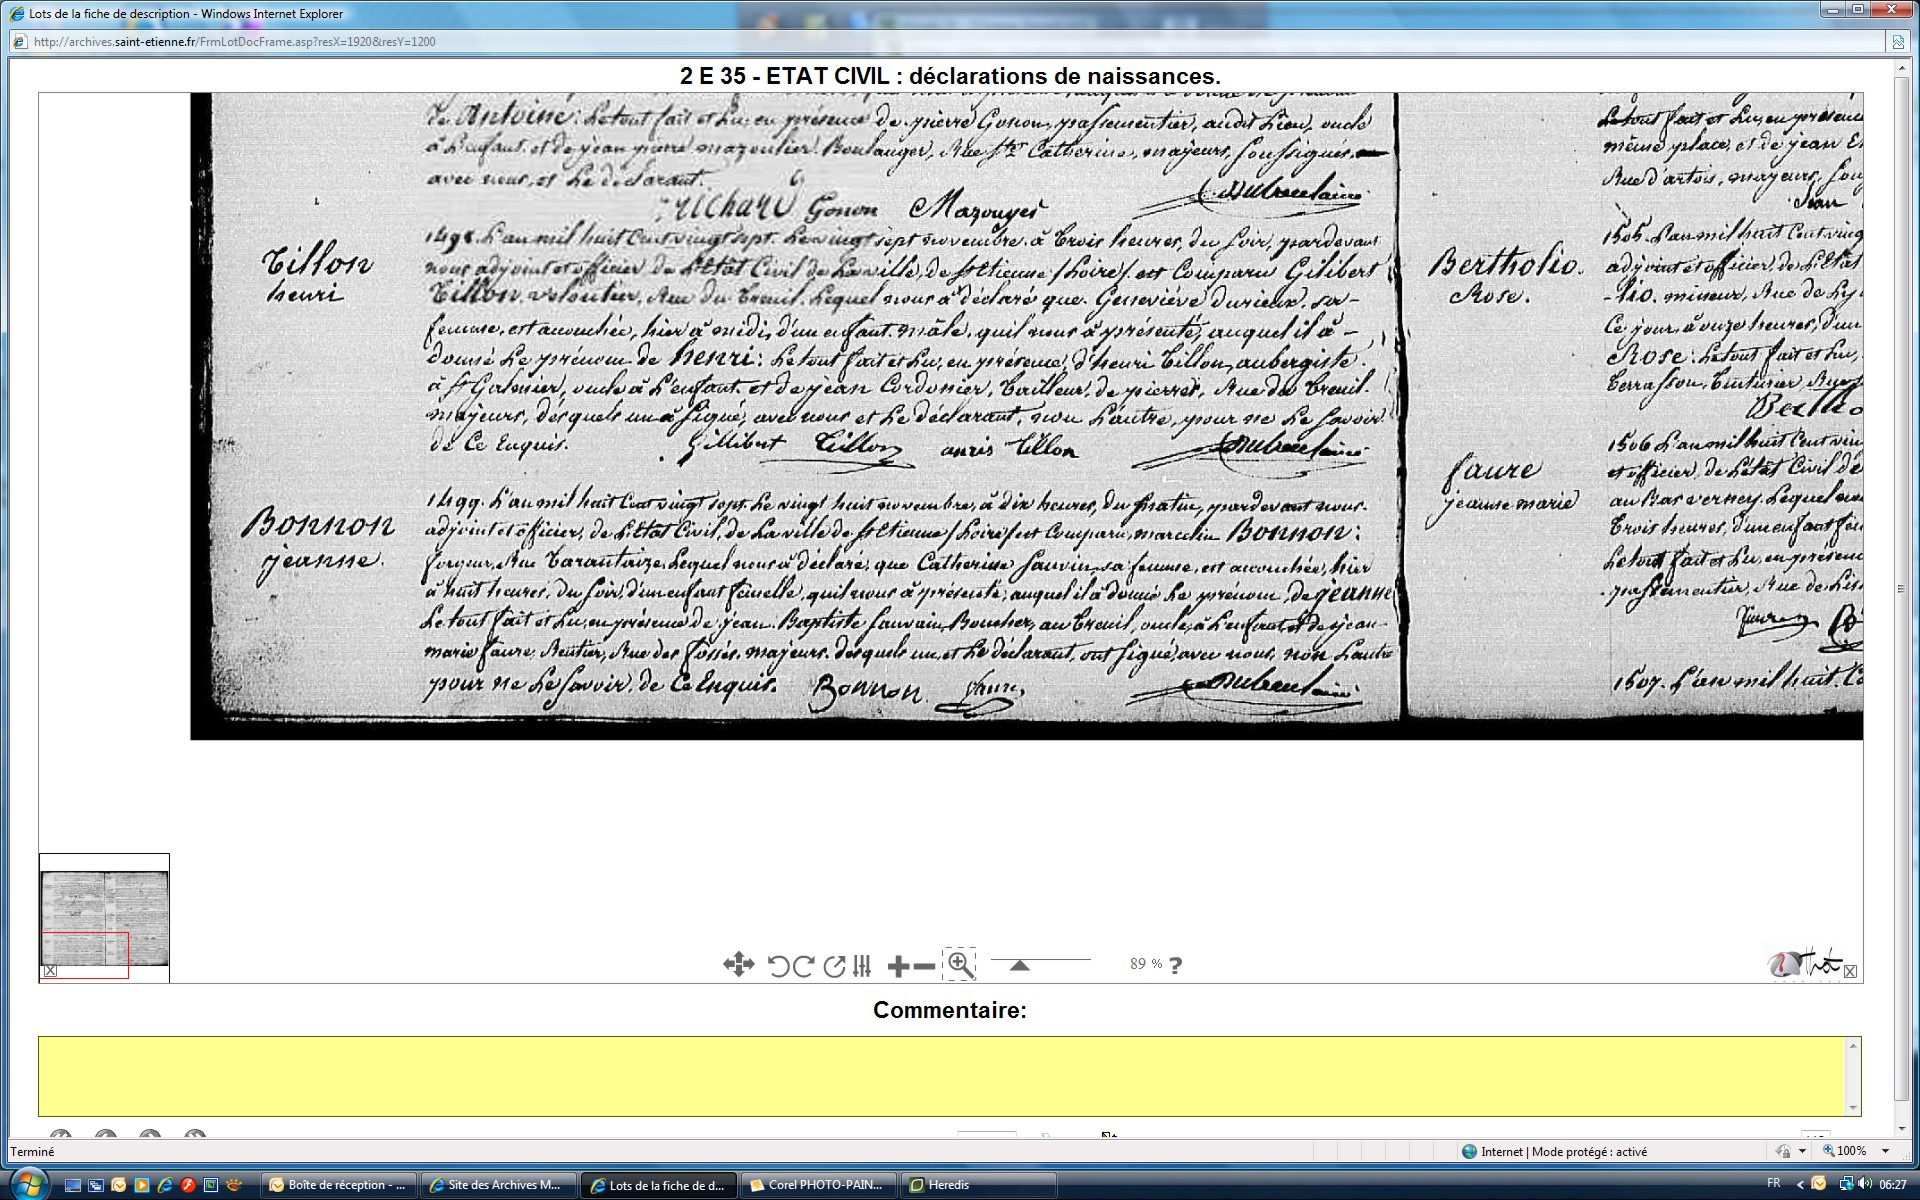 Lots de la fiche de description - Windows Internet Explorer
http://archives.saint-etienne.fr/FrmLotDocFrame.asp?resX=1920&resY=1200
2 E 35 - ETAT CIVIL : déclarations de naissances.
de Antoine: Le tout fait et Lu, en présence de pierre Gonon, passementier, audit Lieu, oncle
à L'enfant. et de jean pierre mazoulier. Boulanger, Rue Ste Catherine, majeurs, soussignés.
avec nous, et Le déclarant.
Richard Gonon Mazouyes
Tillon
henri
1498. L'an mil huit Cent vingt sept. Le vingt sept novembre. à Trois heures, du soir, pardevant
nous adjoint et officier de L'Etat Civil de La ville, de St Etienne (Loire) est Comparu Gilibert
Tillon, veloutier, Rue du Treuil. Lequel nous à déclaré que. Geneviève durieux. sa
femme, est accouchée, hier à midi, d'un enfant. mâle, quil nous à présenté, auquel il à
donné Le prénom de henri: Le tout fait et Lu, en présence, d'henri Tillon, aubergiste.
à St Galmier, oncle à L'enfant. et de jean Cordonier, Tailleur, de pierres, Rue du Treuil.
majeurs, desquels un à signé, avec nous et Le déclarant, non L'autre, pour ne Le savoir
de Ce Enquis.
Gillibert Tillon anris tillon
Bonnon
jeanne.
1499. L'an mil huit Cent vingt sept. Le vingt huit novembre, à dix heures, du matin, pardevant nous.
adjoint et officier, de L'Etat Civil, de La ville de St Etienne (Loire) est Comparu, marcelin Bonnon:
forgeur, Rue Tarantaize. Lequel nous à déclaré, que Catherine Sauvin, sa femme, est accouchée, hier
à huit heures, du soir, d'un enfant femelle, quil nous à présenté, auquel il à donné Le prénom, de jeanne
Le tout fait et Lu, en présence de jean. Baptiste Sauvain, Boucher, au Treuil, oncle, à L'enfant et de jean
marie faure, Rentier, Rue des fossés. majeurs. desquels un, et Le déclarant, ont signé, avec nous, non L'autre
pour ne Le savoir, de Ce Enquis. Bonnon faure
Le tout fait et Lu, en présence
même place, et de jean
Rue d'artois, majeurs,
Jean
Bertholio.
Rose.
1505. L'an mil huit Cent ving
adjoint et officier, de L'Etat
lio. mineur, Rue de Ly
Ce jour, à onze heures, d'un
Rose: Le tout fait et Lu,
Terrasson, Teinturier, Rue
Bertho
faure
jeanne marie
1506 L'an mil huit Cent vin
et officier, de L'état Civil de
au Bas Verney. Lequel
Trois heures, d'un enfant
Le tout fait et Lu, en présence
passementier, Rue de
1507. L'an mil huit. C
89 % ?
Commentaire:
Terminé
Internet | Mode protégé : activé
100%
Boîte de réception - ...
Site des Archives M...
Lots de la fiche de d...
Corel PHOTO-PAIN...
Heredis
FR
06:27